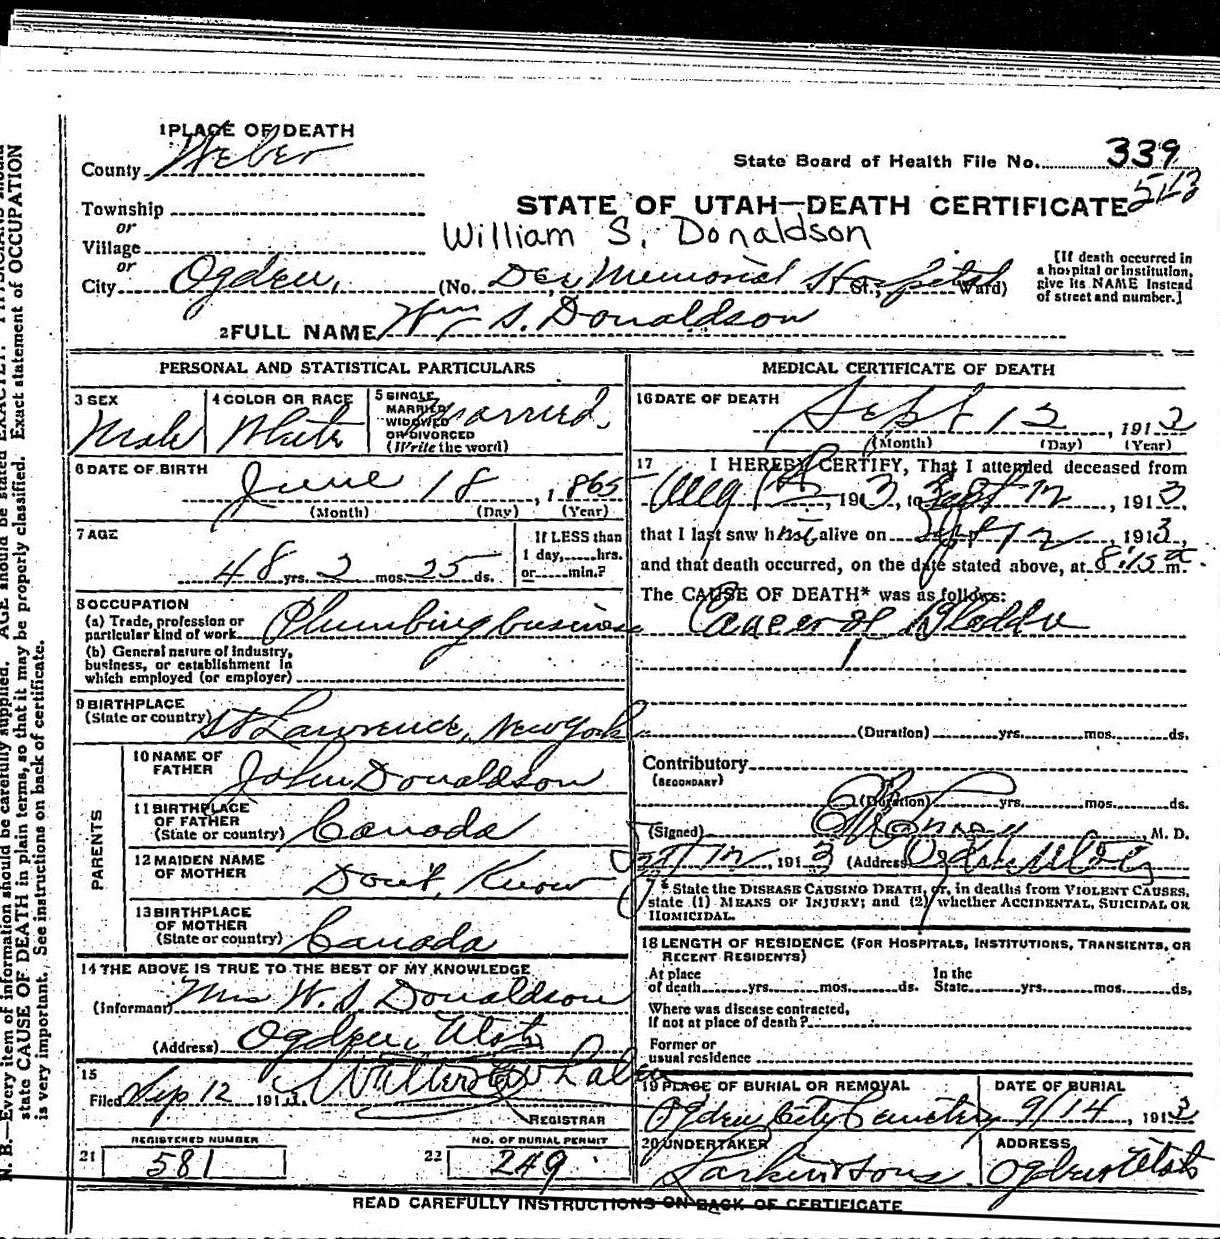 1 PLACE OF DEATH
County Weber
State Board of Health File No. 339
Township
or
STATE OF UTAH—DEATH CERTIFICATE
William S. Donaldson
Village
or
City Ogden, (No. Dee Memorial Hospital St.; Ward)
[If death occurred in
a hospital or institution,
give its NAME instead
of street and number.]
2 FULL NAME Wm S. Donaldson
PERSONAL AND STATISTICAL PARTICULARS
3 SEX
Male
4 COLOR OR RACE
White
5 SINGLE
MARRIED
WIDOWED
OR DIVORCED
(Write the word)
Married.
6 DATE OF BIRTH
June 18, 1865
(Month) (Day) (Year)
7 AGE
48 yrs. 2 mos. 25 ds.
If LESS than
1 day, hrs.
or min.?
8 OCCUPATION
(a) Trade, profession or
particular kind of work Plumbing business
(b) General nature of industry,
business, or establishment in
which employed (or employer)
9 BIRTHPLACE
(State or country) St Lawrence, New York
PARENTS
10 NAME OF
FATHER John Donaldson
11 BIRTHPLACE
OF FATHER
(State or country) Canada
12 MAIDEN NAME
OF MOTHER Don't Know
13 BIRTHPLACE
OF MOTHER
(State or country) Canada
14 THE ABOVE IS TRUE TO THE BEST OF MY KNOWLEDGE
(Informant) Mrs W. S. Donaldson
(Address) Ogden, Utah
15
Filed Sep 12 1913.
REGISTRAR
REGISTERED NUMBER
21 581
NO. OF BURIAL PERMIT
22 249
MEDICAL CERTIFICATE OF DEATH
16 DATE OF DEATH
Sept 12, 1913
(Month) (Day) (Year)
17 I HEREBY CERTIFY, That I attended deceased from
Aug, 1913, to Sept 12, 1913.
that I last saw him alive on Sept 12, 1913,
and that death occurred, on the date stated above, at 8:15 m.
The CAUSE OF DEATH* was as follows:
Cancer of Bladder
(Duration) yrs. mos. ds.
Contributory
(SECONDARY)
(Duration) yrs. mos. ds.
(Signed) , M. D.
Sept 12, 1913 (Address) Ogden Utah
* State the DISEASE CAUSING DEATH, or, in deaths from VIOLENT CAUSES,
state (1) MEANS OF INJURY; and (2) whether ACCIDENTAL, SUICIDAL OR
HOMICIDAL.
18 LENGTH OF RESIDENCE (FOR HOSPITALS, INSTITUTIONS, TRANSIENTS, OR
RECENT RESIDENTS)
At place
of death yrs. mos. ds.
In the
State yrs. mos. ds.
Where was disease contracted,
If not at place of death?
Former or
usual residence
19 PLACE OF BURIAL OR REMOVAL
Ogden City Cemetery
DATE OF BURIAL
9/14, 1913
20 UNDERTAKER
Larkin & Sons.
ADDRESS
Ogden Utah
READ CAREFULLY INSTRUCTIONS ON BACK OF CERTIFICATE
N. B.—Every item of information should be carefully supplied. AGE should be stated EXACTLY. PHYSICIANS should
state CAUSE OF DEATH in plain terms, so that it may be properly classified. Exact statement of OCCUPATION
is very important. See instructions on back of certificate.